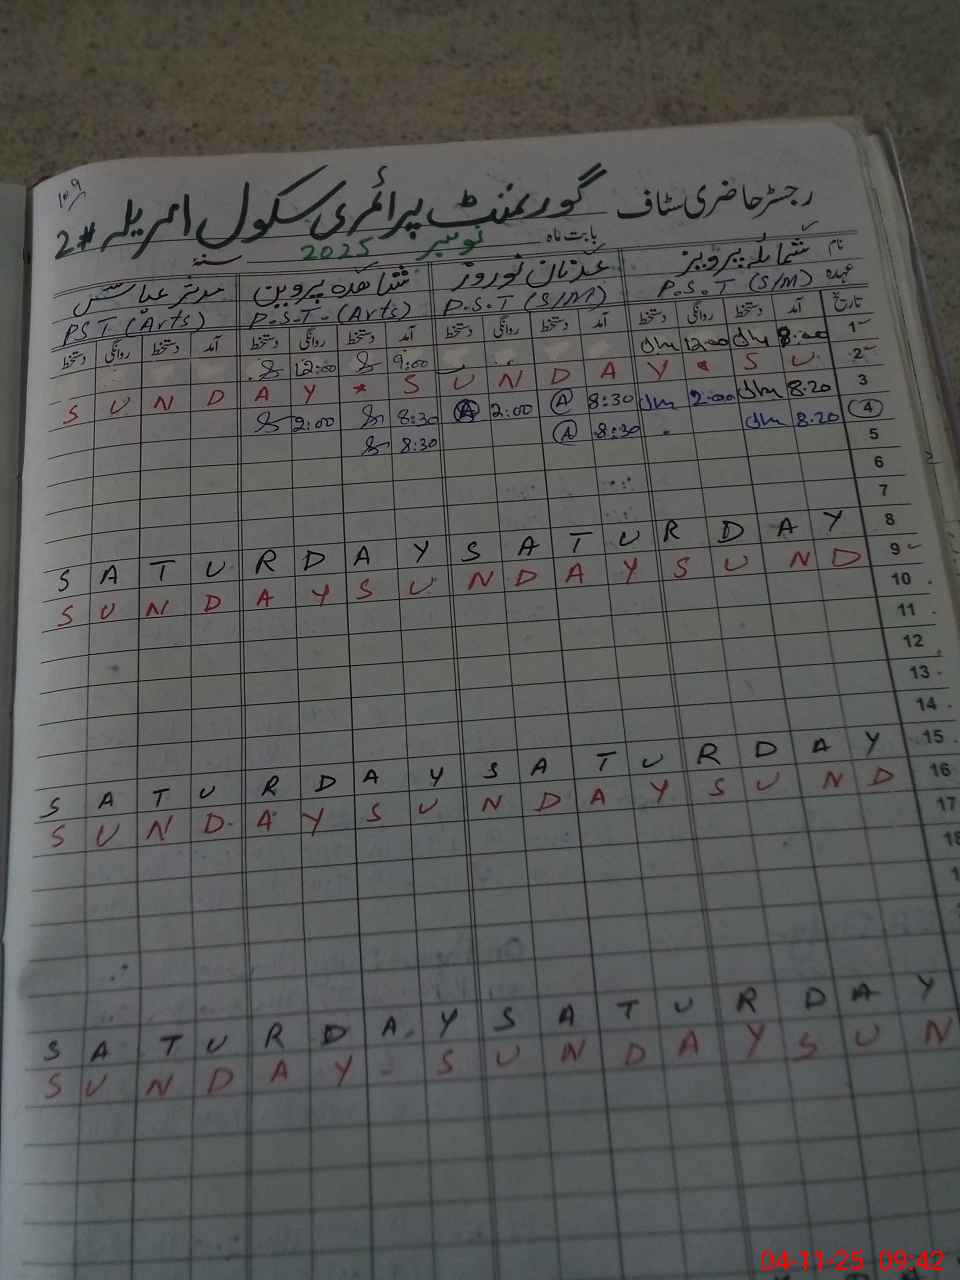 رجسٹر حاضری سٹاف گورنمنٹ پرائمری سکول امریلہ #2
بابت ماہ نومبر 2025
نام شمائلہ پرویز عدنان نوروز شاھدہ پروین مدثر عباس
عہدہ P.S.T (S/M) P.S.T (S/M) P.S.T.(Arts) PST (Arts)
تاریخ آمد دستخط روانگی دستخط آمد دستخط روانگی دستخط آمد دستخط روانگی دستخط آمد دستخط روانگی دستخط
1 8:00 12:00 9:00 12:00
2 S U N D A Y * S U N D A Y * S U
3 8:20 2:00 8:30 A 2:00 A 8:30 2:00
4 8:20 8:30 A 8:30
5
6
7
8 S A T U R D A Y S A T U R D A Y
9 S U N D A Y S U N D A Y S U N D
10
11
12
13
14
15 S A T U R D A Y S A T U R D A Y
16 S U N D A Y S U N D A Y S U N D
17
18
S A T U R D A Y S A T U R D A Y
S U N D A Y S U N D A Y S U N
04-11-25 09:42